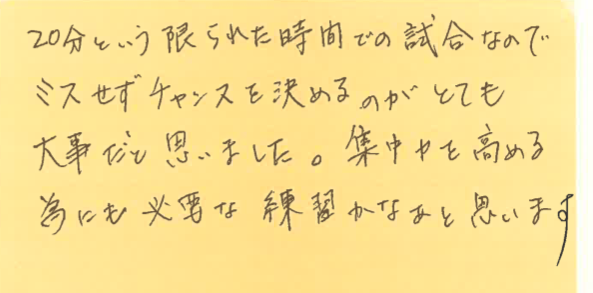 20分という限られた時間での試合なので
ミスせずチャンスを決めるのがとても
大事だと思いました。集中力を高める
為にも必要な練習かなぁと思います